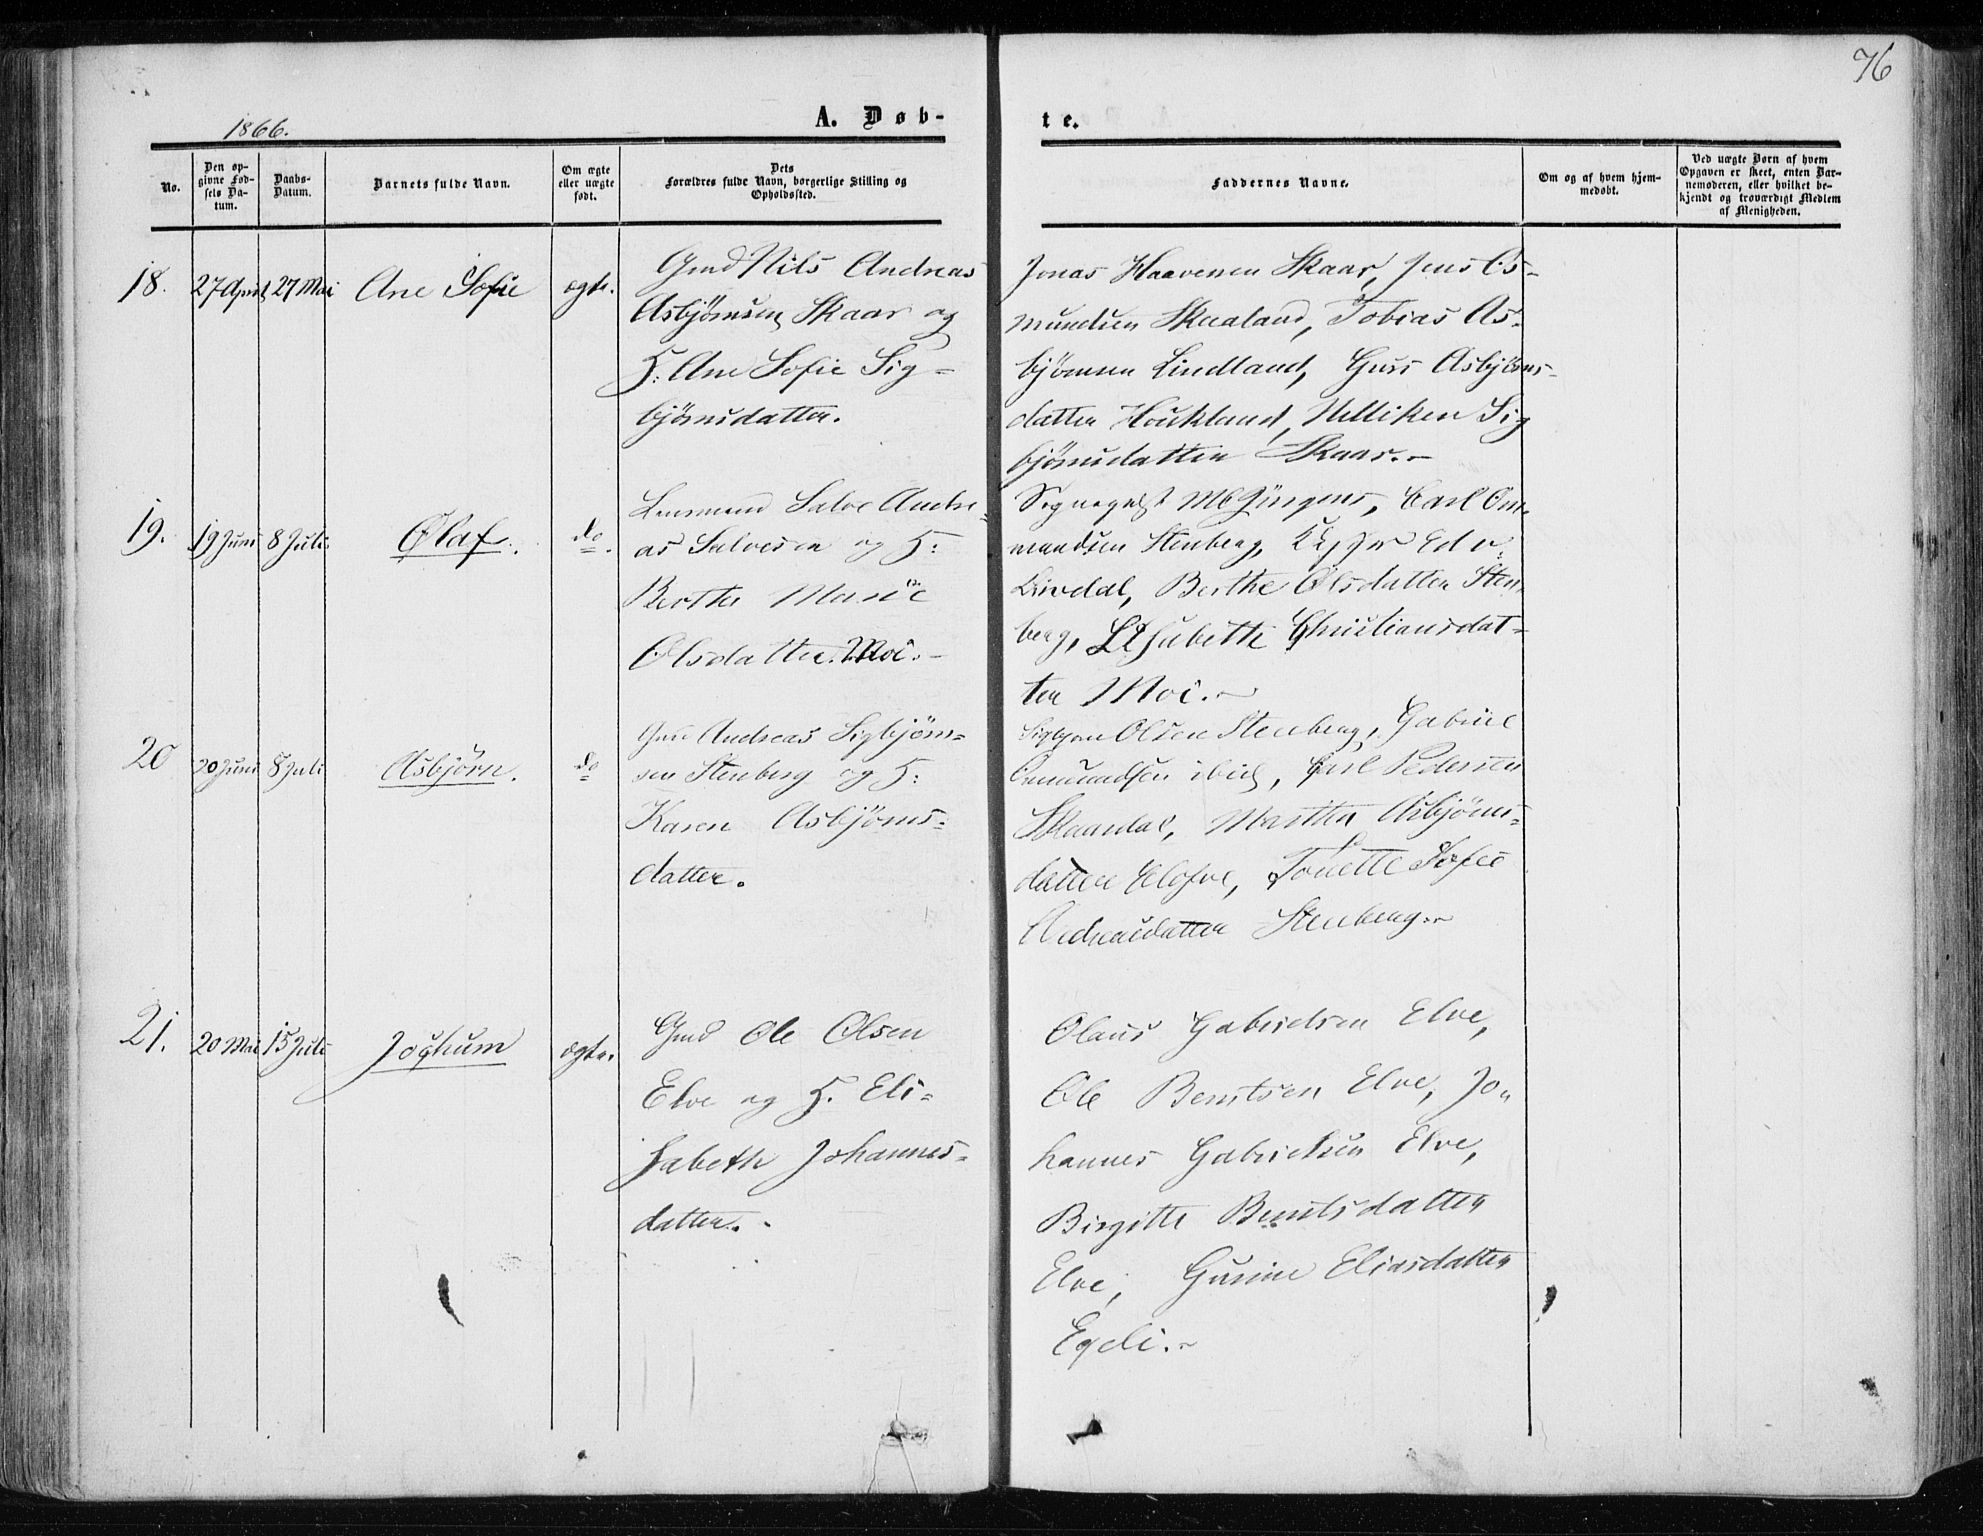 76
1866.
A. Døb-
te.
No.
Den op-
givne Fød-
sels Da-
tum.
Daabs-
Datum.
Barnets fulde Navn.
Om ægte
eller uægte
født.
Dets
Forældres fulde Navn, borgerlige Stilling og
Opholdssted.
Faddernes Navne.
Om og af hvem hjem-
medøbt.
Ved uægte Børn af hvem
Opgaven er skeet, enten Bar-
nemoderen, eller hvilket be-
kjendt og troværdigt Medlem
af Menigheden.
18.
27 April
27 Mai
Ane Sofie
ægte.
Gmd Nils Andreas
Asbjørnsen Skaar og
H. Ane Sofie Sig-
bjørnsdatter.
Jonas Haavesen Skaar, Jens Os-
mundsen Skaaland, Tobias As-
bjørnsen Lindland, Guri Asbjørns-
datter Houkland, Nilliken Sig
bjørnsdatter Skaar.-
19.
19 Juni
8 Juli
Olaf.
do.
Lensmand Salve Andre-
as Salvesen og H:
Berthe Marie
Olsdatter Moi.-
Sognepræst Jürgens, Carl Om-
mundsen Stenberg, Edv.
Lindal, Berthe Olsdatter Sten-
berg, Elisabeth Christiansdat-
ter Moi.-
20
20 Juni
8 Juli
Asbjørn.
do
Gmd Andreas Sigbjørn-
sen Stenberg og H:
Karen Asbjørns-
datter.
Sigbjørn Olsen Stenberg, Gabriel
Ommundsen ibid, Carl Pedersen
Skaardal, Marthe Asbjørns-
datter, Tonette Sofie
Andreasdatter Stenberg.-
21.
20 Mai
15 Juli
Jochum
ægte.
Gmd Ole Olsen
Elve og H. Eli-
sabeth Johannes-
datter.
Olaus Gabrielsen Elve,
Ole Berntsen Elve, Jo-
hannes Gabrielsen Elve,
Birgitte Berntsdatter
Elve, Gurine Eliasdatter
Egeli.-